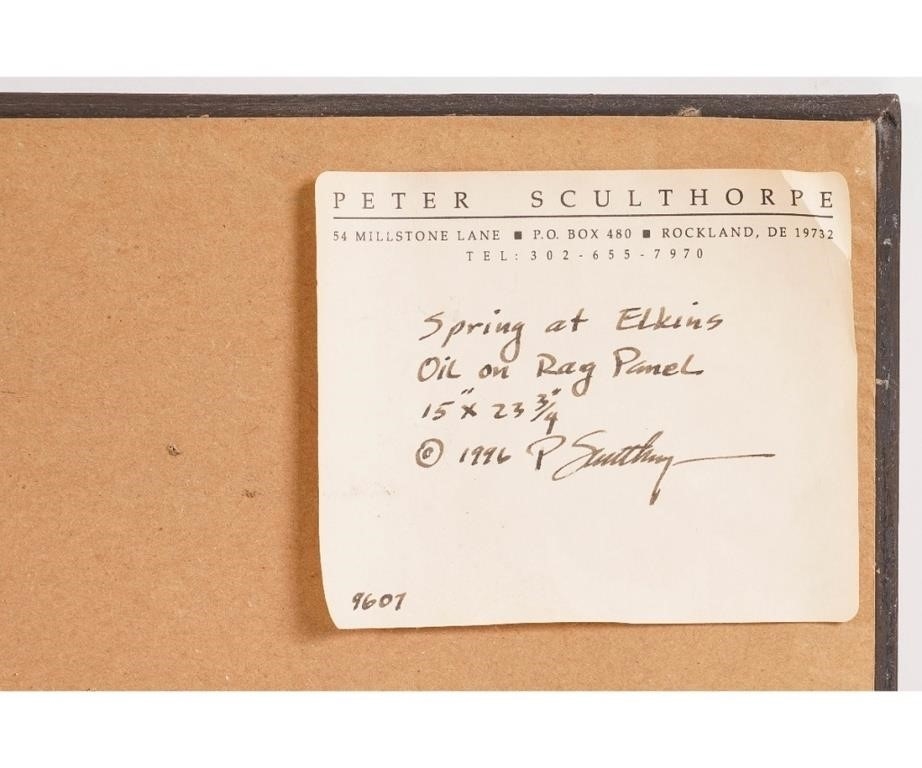 PETER SCULTHORPE
54 MILLSTONE LANE ■ P.O. BOX 480 ■ ROCKLAND, DE 19732
TEL: 302-655-7970
Spring at Elkins
Oil on Rag Panel
15" x 23 3/4"
© 1996 P Sculthorpe
9607